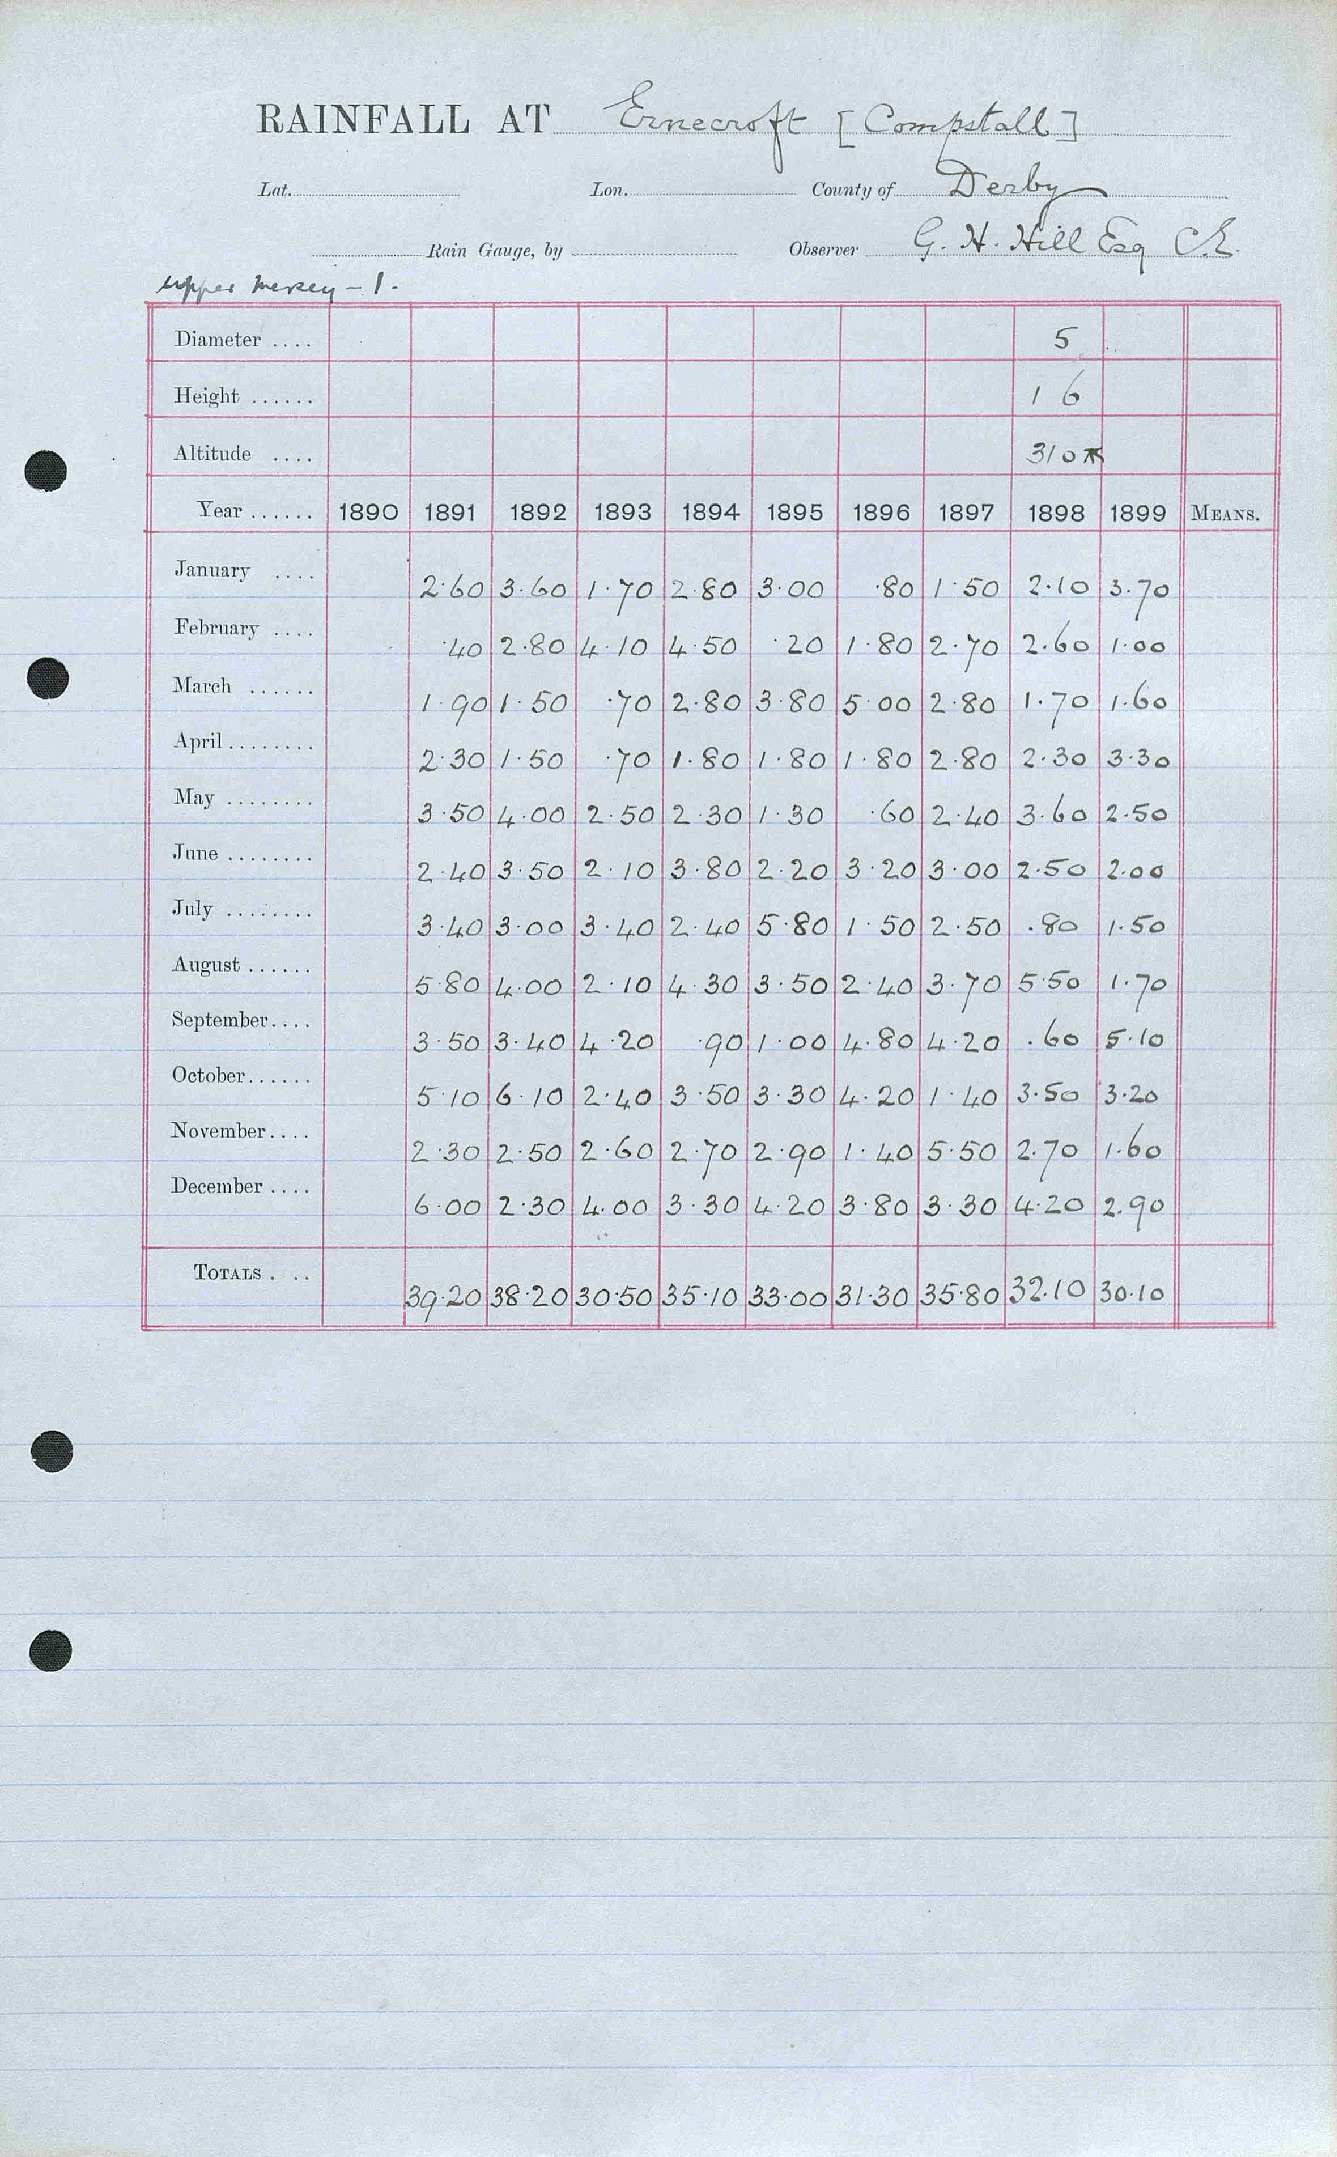 RAINFALL AT Ernecroft [Compstall]
Lat. Lon. County of Derby
Rain Gauge, by Observer G. H. Hill Esq C.E.
Upper Mersey - 1.
Diameter .... 5
Height ...... 1 6
Altitude .... 310
Year ...... 1890 1891 1892 1893 1894 1895 1896 1897 1898 1899 MEANS.
January .... 2.60 3.60 1.70 2.80 3.00 .80 1.50 2.10 3.70
February .... .40 2.80 4.10 4.50 .20 1.80 2.70 2.60 1.00
March ...... 1.90 1.50 .70 2.80 3.80 5.00 2.80 1.70 1.60
April ........ 2.30 1.50 .70 1.80 1.80 1.80 2.80 2.30 3.30
May ........ 3.50 4.00 2.50 2.30 1.30 .60 2.40 3.60 2.50
June ........ 2.40 3.50 2.10 3.80 2.20 3.20 3.00 2.50 2.00
July ........ 3.40 3.00 3.40 2.40 5.80 1.50 2.50 .80 1.50
August ...... 5.80 4.00 2.10 4.30 3.50 2.40 3.70 5.50 1.70
September .... 3.50 3.40 4.20 .90 1.00 4.80 4.20 .60 5.10
October ...... 5.10 6.10 2.40 3.50 3.30 4.20 1.40 3.50 3.20
November .... 2.30 2.50 2.60 2.70 2.90 1.40 5.50 2.70 1.60
December .... 6.00 2.30 4.00 3.30 4.20 3.80 3.30 4.20 2.90
TOTALS . .. 39.20 38.20 30.50 35.10 33.00 31.30 35.80 32.10 30.10